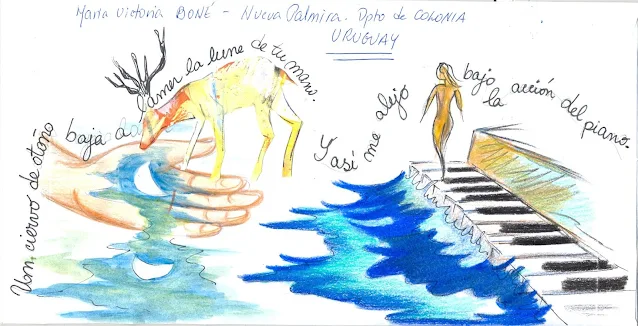 María Victoria BONÉ - Nueva Palmira. Dpto de COLONIA
URUGUAY
Un ciervo de otoño
baja a
lamer la luna de tu mano.
Y así me alejo
bajo la acción del piano.